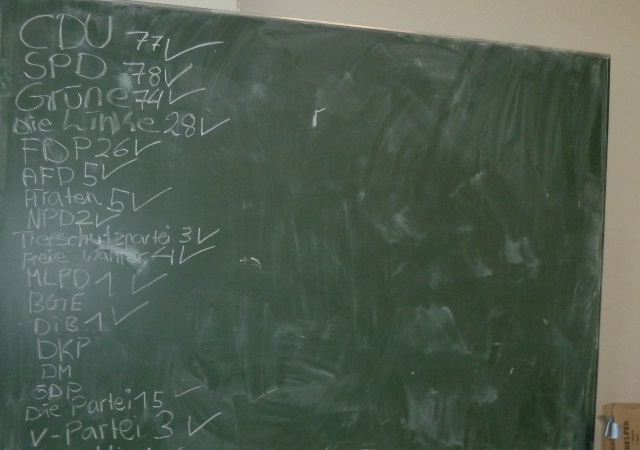 CDU 77 ✓
SPD 78 ✓
Grüne 74 ✓
Die Linke 28 ✓
FDP 26 ✓
AFD 5 ✓
Piraten 5 ✓
NPD 2 ✓
Tierschutzpartei 3 ✓
Freie Wähler 4 ✓
MLPD 1 ✓
BGE
DiB 1 ✓
DKP
DM
ÖDP
Die Partei 15 ✓
V-Partei 3 ✓